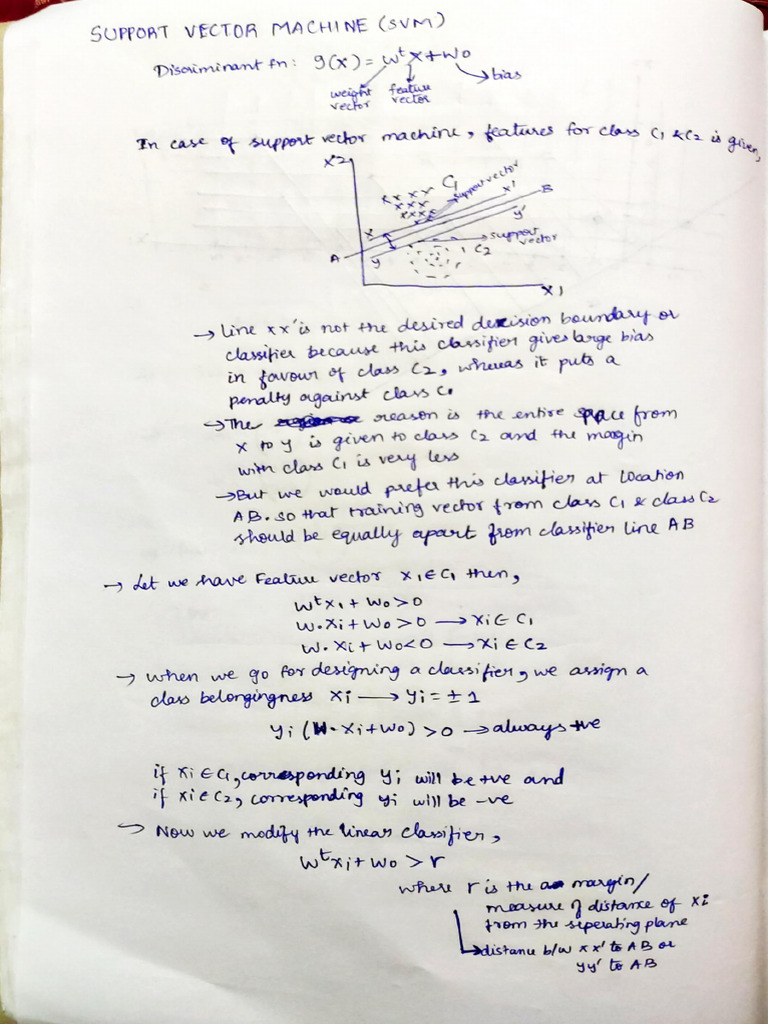 SUPPORT VECTOR MACHINE (SVM)
Discriminant fn: g(x) = wᵗx+wo
weight vector
feature vector
bias
In case of support vector machine, features for class C1 & C2 is given,
X2
C1
support vector
x'
B
y'
x
A
y
support vector
C2
X1
→ Line xx' is not the desired decision boundary or
classifier because this classifier gives large bias
in favour of class C2, whereas it puts a
penalty against class C1
→ The reason is the entire space from
x to y is given to class C2 and the margin
with class C1 is very less
→ But we would prefer this classifier at location
AB. so that training vector from class C1 & class C2
should be equally apart from classifier line AB
→ Let we have Feature vector x1 ∈ C1 then,
wᵗx1 + wo > 0
w.xi + wo > 0 → xi ∈ C1
w.xi + wo < 0 → xi ∈ C2
→ when we go for designing a classifier, we assign a
class belongingness xi → yi = ±1
yi (w.xi + wo) > 0 → always +ve
if xi ∈ C1, corresponding yi will be +ve and
if xi ∈ C2, corresponding yi will be -ve
→ Now we modify the linear classifier,
wᵗxi + wo > r
where r is the margin/
measure of distance of xi
from the seperating plane
→ distance b/w xx' to AB or
yy' to AB